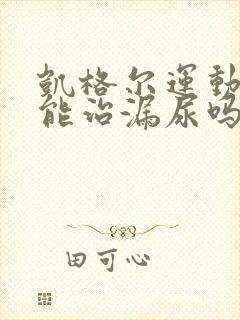 凱格尔運動
能治漏尿吗
田可心